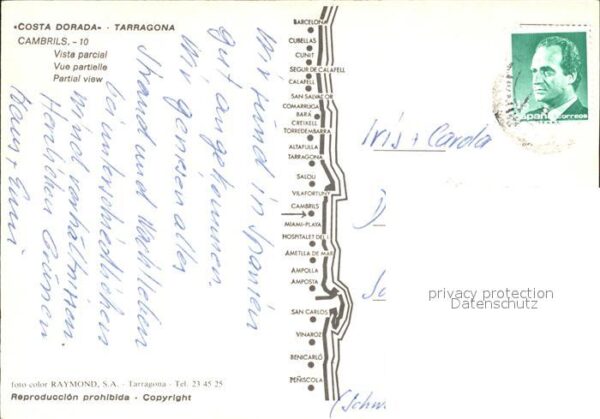 «COSTA DORADA» - TARRAGONA
CAMBRILS, - 10
Vista parcial
Vue partielle
Partial view
Wir sind in Spanien
gut angekommen.
Wir geniesen alles
Strand und Nachtleben
bei unterschiedlichen
Windverhältnissen.
Herzlichen Grüssen
BARCELONA
CUBELLAS
CUNIT
SEGUR DE CALAFELL
CALAFELL
SAN SALVADOR
COMARRUGA
BARA
CREIXELL
TORREDEMBARRA
ALTAFULLA
TARRAGONA
SALOU
VILAFORTUNY
CAMBRILS
MIAMI-PLAYA
HOSPITALET DEL I.
AMETLLA DE MAR
AMPOLLA
AMPOSTA
SAN CARLOS
VINAROZ
BENICARLÓ
PEÑISCOLA
foto color RAYMOND, S.A. - Tarragona - Tel. 23 45 25
Reproducción prohibida - Copyright
España correos
Iris + Carola
privacy protection
Datenschutz
(Schw